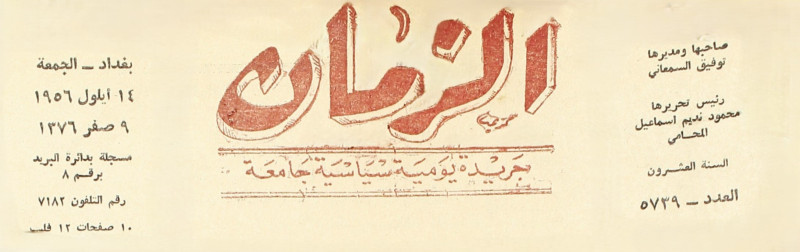 صاحبها ومديرها
توفيق السمعاني
رئيس تحريرها
محمود نديم اسماعيل
المحامي
السنة العشرون
العدد – ٥٧٣٩
الزمان
جريدة يومية سياسية جامعة
بغداد – الجمعة
١٤ أيلول ١٩٥٦
٩ صفر ١٣٧٦
مسجلة بدائرة البريد
برقم ٨
رقم التلفون ٧١٨٢
١٠ صفحات ١٢ فلسا